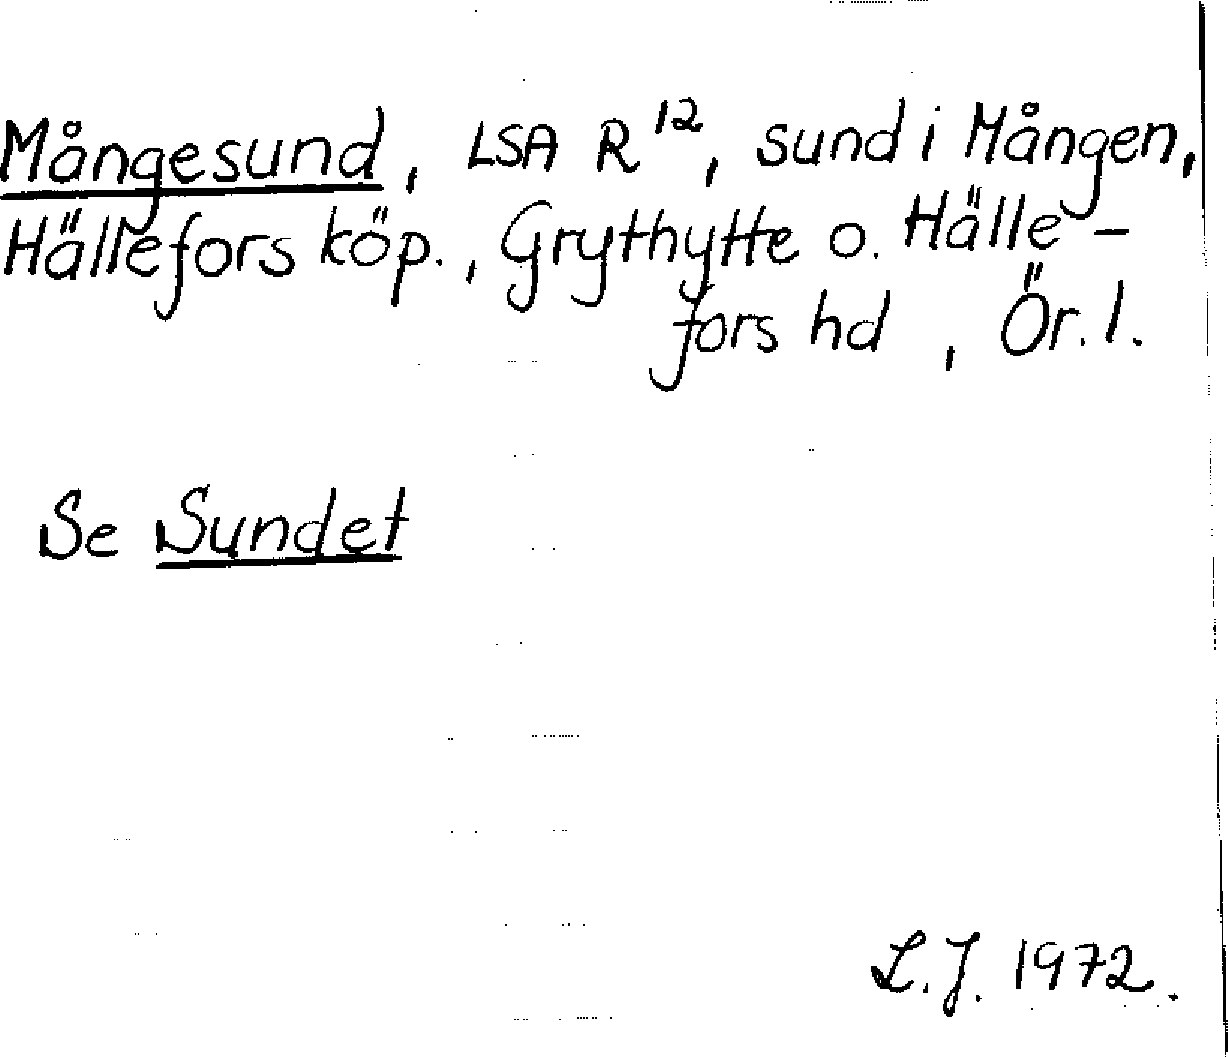 Mångesund, LSA R12, sund i Mången,
Hällefors köp., Grythytte o. Hälle-
fors hd, Ör. l.
Se Sundet
L.J. 1972.